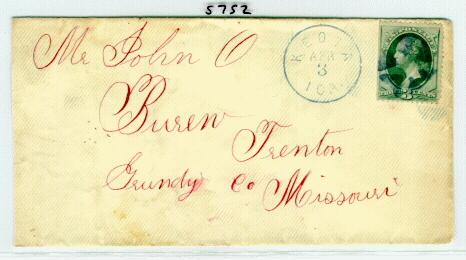 5752
KEOTA
APR
3
IOA.
Mr John O
Buren
Trenton
Grundy Co Missouri